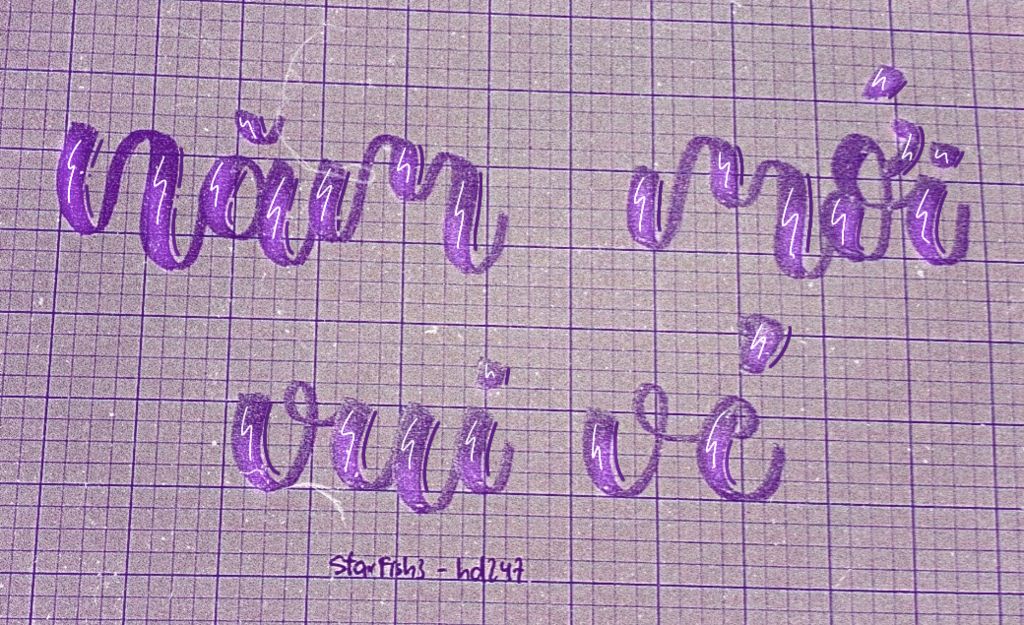 năm mới
vui vẻ
StarFish3 - hd247